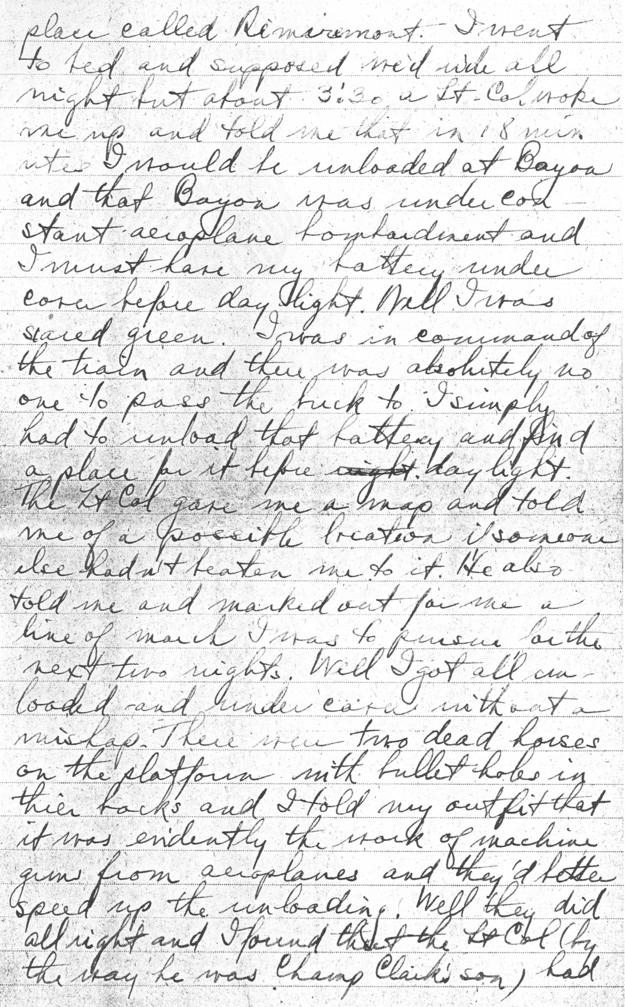 place called Remiremont. I went
to bed and supposed we'd ride all
night but about 3:30 a Lt-Col. woke
me up and told me that in 18 min
utes I would be unloaded at Bayon
and that Bayon was under con-
stant aeroplane bombardment and
I must have my battery under
cover before day light. Well I was
scared green. I was in command of
the train and there was absolutely no
one to pass the buck to. I simply
had to unload that battery and find
a place for it before night. daylight.
The Lt Col gave me a map and told
me of a possible location if someone
else hadn't beaten me to it. He also
told me and marked out for me a
line of march I was to pursue for the
next two nights. Well I got all un-
loaded and under cover without a
mishap. There were two dead horses
on the platform with bullet holes in
thier backs and I told my outfit that
it was evidently the work of machine
guns from aeroplanes and they'd better
speed up the unloading. Well they did
all right and I found that the Lt Col (by
the way he was Champ Clark's son) had